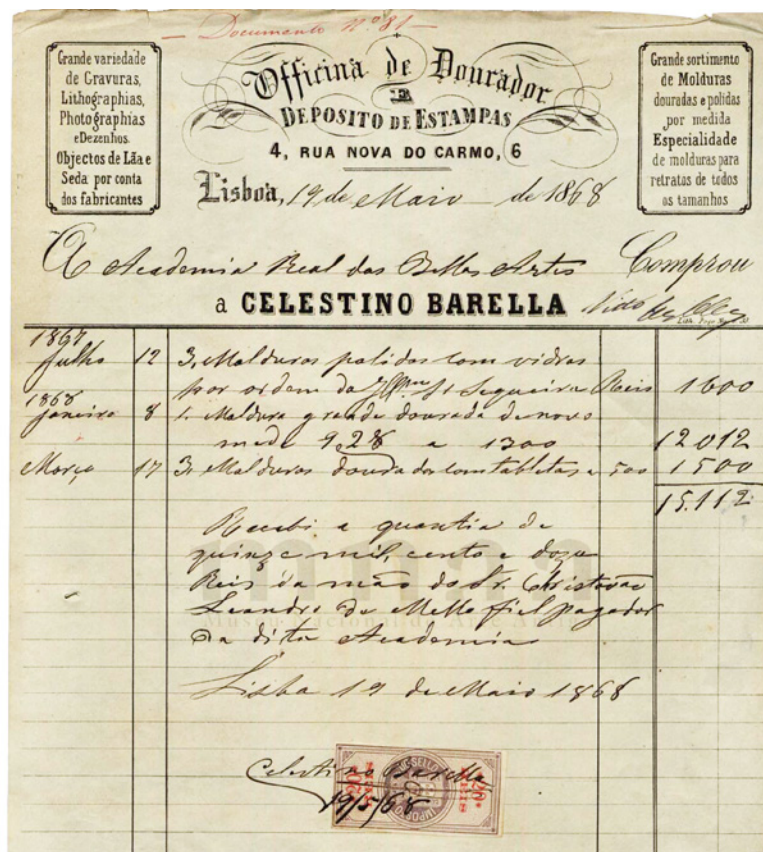 — Documento Nº 81 —
Grande variedade
de Gravuras,
Lithographias,
Photographias
e Dezenhos.
Objectos de Lãa e
Seda por conta
dos fabricantes
Officina de Dourador
E
DEPOSITO DE ESTAMPAS
4, RUA NOVA DO CARMO, 6
Grande sortimento
de Molduras
douradas e polidas
por medida
Especialidade
de molduras para
retratos de todos
os tamanhos
Lisboa, 19 de Maio — de 1868
A Academia Real das Bellas Artes Comprou
a CELESTINO BARELLA
1867
Julho 12 3, Molduras polidas com vidros
por ordem do Illmo Sr Sequeira Reis 1600
1868
Janeiro 8 1. Moldura grande dourada de novo
mede 9,28 a 1300 12012
Março 17 3, Molduras douradas com tabletas a 500 1500
15.112
Recebi a quantia de
quinze mil, cento e doze
Reis da mão do Sr. Christovão
Leandro de Mello fiel pagador
da dita Academia
Museu Nacional de Arte Antiga
Lisba 19 de Maio 1868
Celestino Barella
19/5/68
20 REIS
IMPOSTO DO SELLO
20 REIS